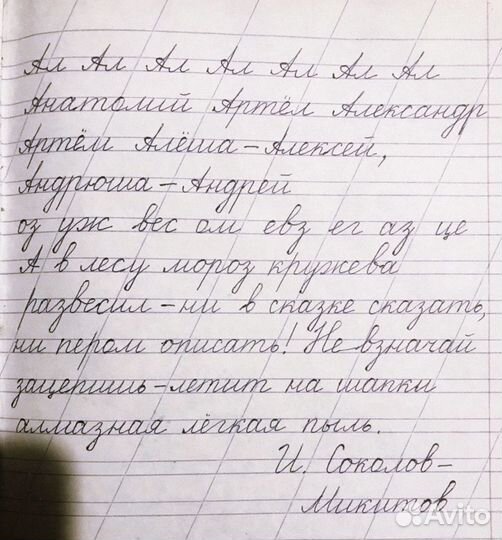 Ал Ал Ал Ал Ал Ал Ал
Анатолий Артём Александр
Артём Алёша - Алексей,
Андрюша - Андрей
оз уж вес ом евз ег аз це
А в лесу мороз кружева
развесил - ни в сказке сказать,
ни пером описать! Не взначай
зацепишь - летит на шапки
алмазная лёгкая пыль.
И. Соколов-
Микитов
Avito